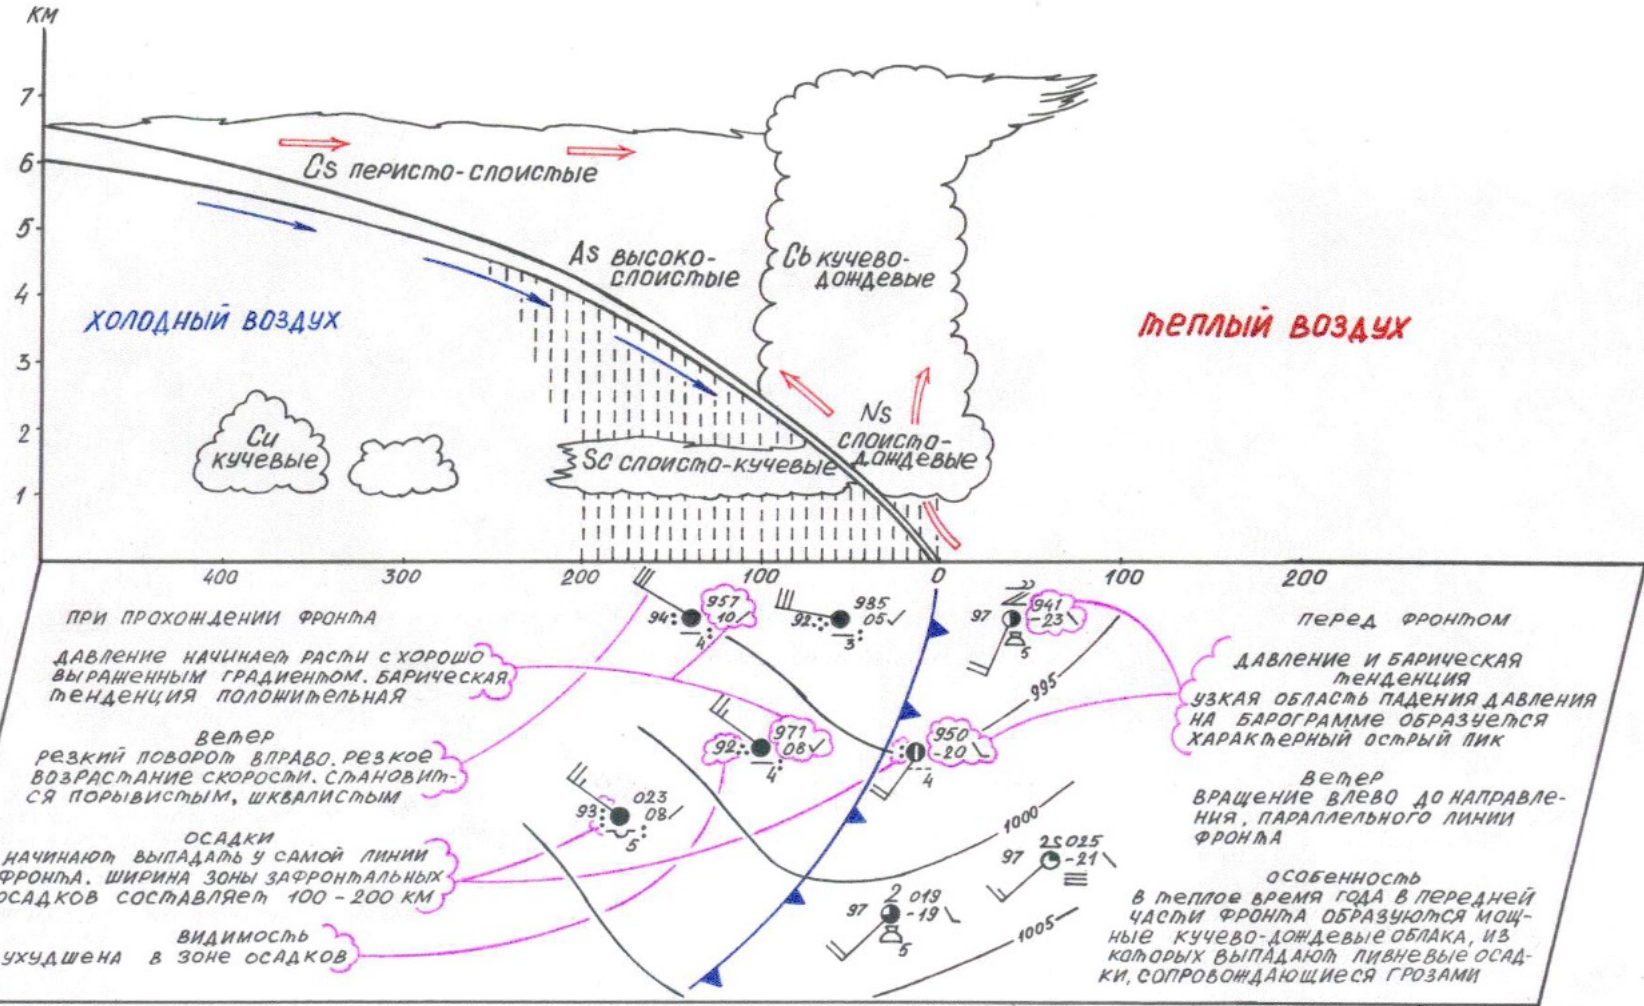 КМ
7
6
5
4
3
2
1
Cs ПЕРИСТО-СЛОИСТЫЕ
As ВЫСОКО-
СЛОИСТЫЕ
Cb КУЧЕВО-
ДОЖДЕВЫЕ
ХОЛОДНЫЙ ВОЗДУХ
ТЕПЛЫЙ ВОЗДУХ
Cu
КУЧЕВЫЕ
Ns
СЛОИСТО-
ДОЖДЕВЫЕ
Sc СЛОИСТО-КУЧЕВЫЕ
400 300 200 100 0 100 200
ПРИ ПРОХОЖДЕНИИ ФРОНТА
ДАВЛЕНИЕ НАЧИНАЕТ РАСТИ С ХОРОШО
ВЫРАЖЕННЫМ ГРАДИЕНТОМ. БАРИЧЕСКАЯ
ТЕНДЕНЦИЯ ПОЛОЖИТЕЛЬНАЯ
ВЕТЕР
РЕЗКИЙ ПОВОРОТ ВПРАВО. РЕЗКОЕ
ВОЗРАСТАНИЕ СКОРОСТИ. СТАНОВИТ-
СЯ ПОРЫВИСТЫМ, ШКВАЛИСТЫМ
ОСАДКИ
НАЧИНАЮТ ВЫПАДАТЬ У САМОЙ ЛИНИИ
ФРОНТА. ШИРИНА ЗОНЫ ЗАФРОНТАЛЬНЫХ
ОСАДКОВ СОСТАВЛЯЕТ 100-200 КМ
ВИДИМОСТЬ
УХУДШЕНА В ЗОНЕ ОСАДКОВ
957
94 10
4
985
92 05
3
941
97 -23
5
971
92 08
4
950
-20
4
023
93 08
5
025
97 -21
019
97 -19
5
995
1000
1005
ПЕРЕД ФРОНТОМ
ДАВЛЕНИЕ И БАРИЧЕСКАЯ
ТЕНДЕНЦИЯ
УЗКАЯ ОБЛАСТЬ ПАДЕНИЯ ДАВЛЕНИЯ
НА БАРОГРАММЕ ОБРАЗУЕТСЯ
ХАРАКТЕРНЫЙ ОСТРЫЙ ПИК
ВЕТЕР
ВРАЩЕНИЕ ВЛЕВО ДО НАПРАВЛЕ-
НИЯ, ПАРАЛЛЕЛЬНОГО ЛИНИИ
ФРОНТА
ОСОБЕННОСТЬ
В ТЕПЛОЕ ВРЕМЯ ГОДА В ПЕРЕДНЕЙ
ЧАСТИ ФРОНТА ОБРАЗУЮТСЯ МОЩ-
НЫЕ КУЧЕВО-ДОЖДЕВЫЕ ОБЛАКА, ИЗ
КОТОРЫХ ВЫПАДАЮТ ЛИВНЕВЫЕ ОСАД-
КИ, СОПРОВОЖДАЮЩИЕСЯ ГРОЗАМИ